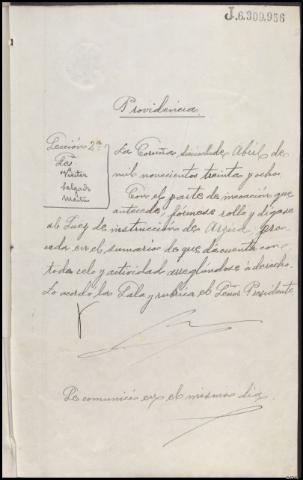 J.6.309.956
Providencia
Sección 2ª
La Coruña de Abril de
mil novecientos treinta y ocho.
Con el parte de incoación que
antecede, fórmese rollo y dígase
al Juez de instrucción de Arzúa, pro-
ceda en el sumario de que dá cuenta con
todo celo y actividad arreglándose á derecho.
Lo acordó la Sala y rubrica el Señor Presidente
Se comunicó en el mismo día.